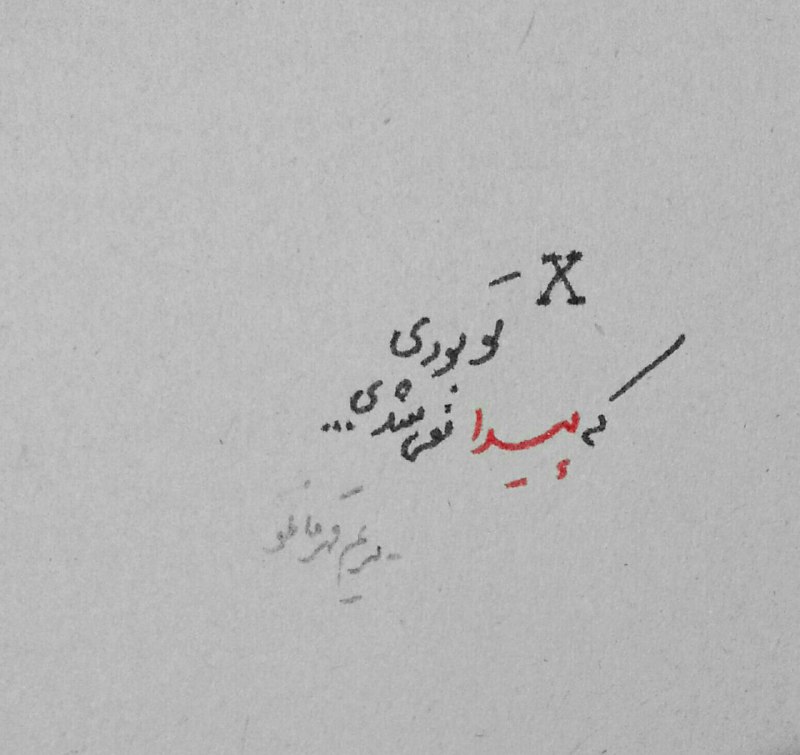 X
تو بودی
که پیدا نمی‌شدی...
- مریم قهرمانلو